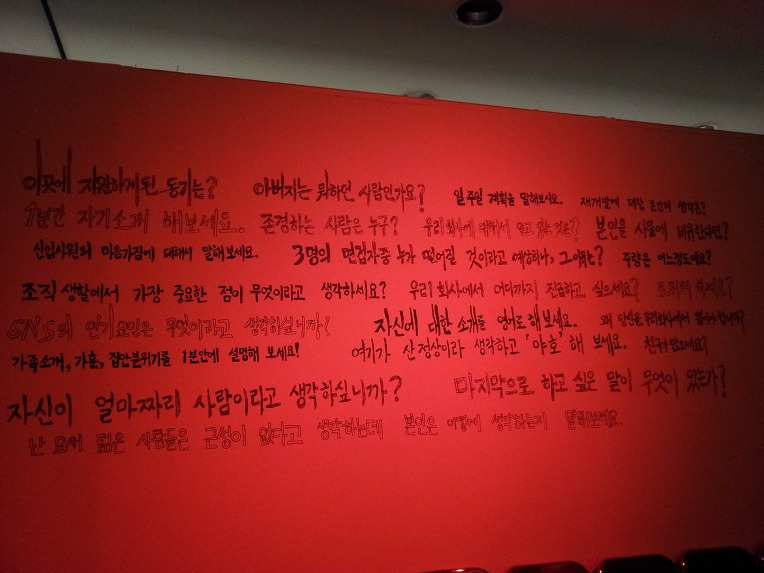 이곳에 지원하게된 동기는? 아버지는 뭐하던 사람인가요? 일주일 계획을 말해보세요. 재개발에 대한 본인의 생각은?
1분간 자기소개 해보세요. 존경하는 사람은 누구? 우리회사에 대해서 알고 있는 것은? 본인을 사물에 비유한다면?
신입사원의 마음가짐에 대해서 말해보세요. 3명의 면접자중 누가 떨어질 것이라고 예상하나, 그이유는? 주량은 어느정도에요?
조직생활에서 가장 중요한 점이 무엇이라고 생각하세요? 우리회사에서 어디까지 진급하고 싶으세요? 하세요?
SNS의 인기요인은 무엇이라고 생각하십니까? 자신에 대한 소개를 영어로 해보세요. 왜 당신을 우리회사에서 뽑아야 합니까?
가족소개, 가훈, 집안분위기를 1분안에 설명해 보세요! 여기가 산 정상이라 생각하고 '야호' 해 보세요. 친구가 많으세요?
자신이 얼마짜리 사람이라고 생각하싶니까? 마지막으로 하고 싶은 말이 무엇이 있는가?
난 요새 젊은 사람들은 근성이 없다고 생각하는데 본인은 어떻게 생각하는지 말해보세요.